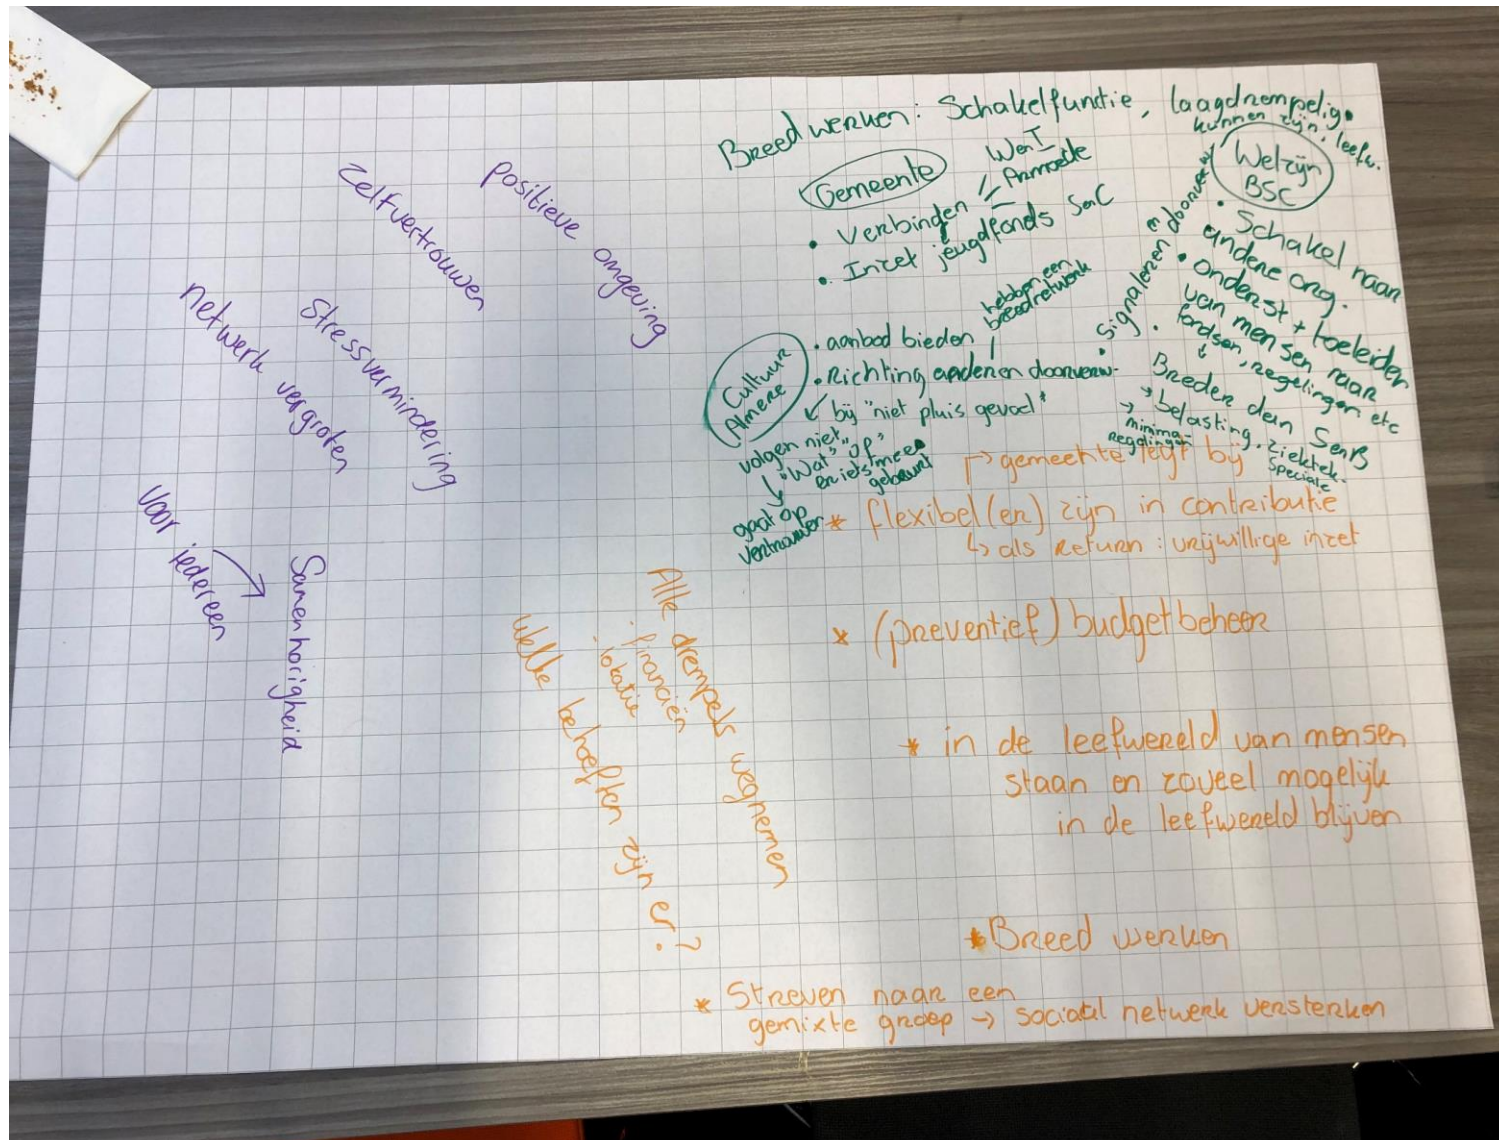 positieve omgeving
Zelfvertrouwen
Stressvermindering
netwerk vergroten
Voor
iedereen
Samenhorigheid
Breed werken: Schakelfunctie, laagdrempelig
kunnen zijn, leefw.
Gemeente
• Verbinden
WenI
Armoede
• Inzet jeugdfonds SenC
Welzijn
BSC
• Schakel naar
andere org.
• onderst + toeleiden
van mensen naar
fondsen, regelingen etc
Breder dan SenB
→ belasting, ziektek.
→ minima-
regelingen
Speciale
• Signaleren en doorverw
Cultuur
Almere
• aanbod bieden
hebben een
breed netwerk
• Richting anderen doorverw.
bij "niet pluis gevoel"
volgen niet
"Wat" "op"
er iets mee
gebeurt
gaat op
vertrouwen
gemeente legt bij
* flexibel(er) zijn in contributie
↳ als return: vrijwillige inzet
* (preventief) budgetbeheer
* in de leefwereld van mensen
staan en zoveel mogelijk
in de leefwereld blijven
* Breed werken
* Streven naar een
gemixte groep → sociaal netwerk versterken
Alle drempels wegnemen
• financiën
• locatie
Welke behoeften zijn er?